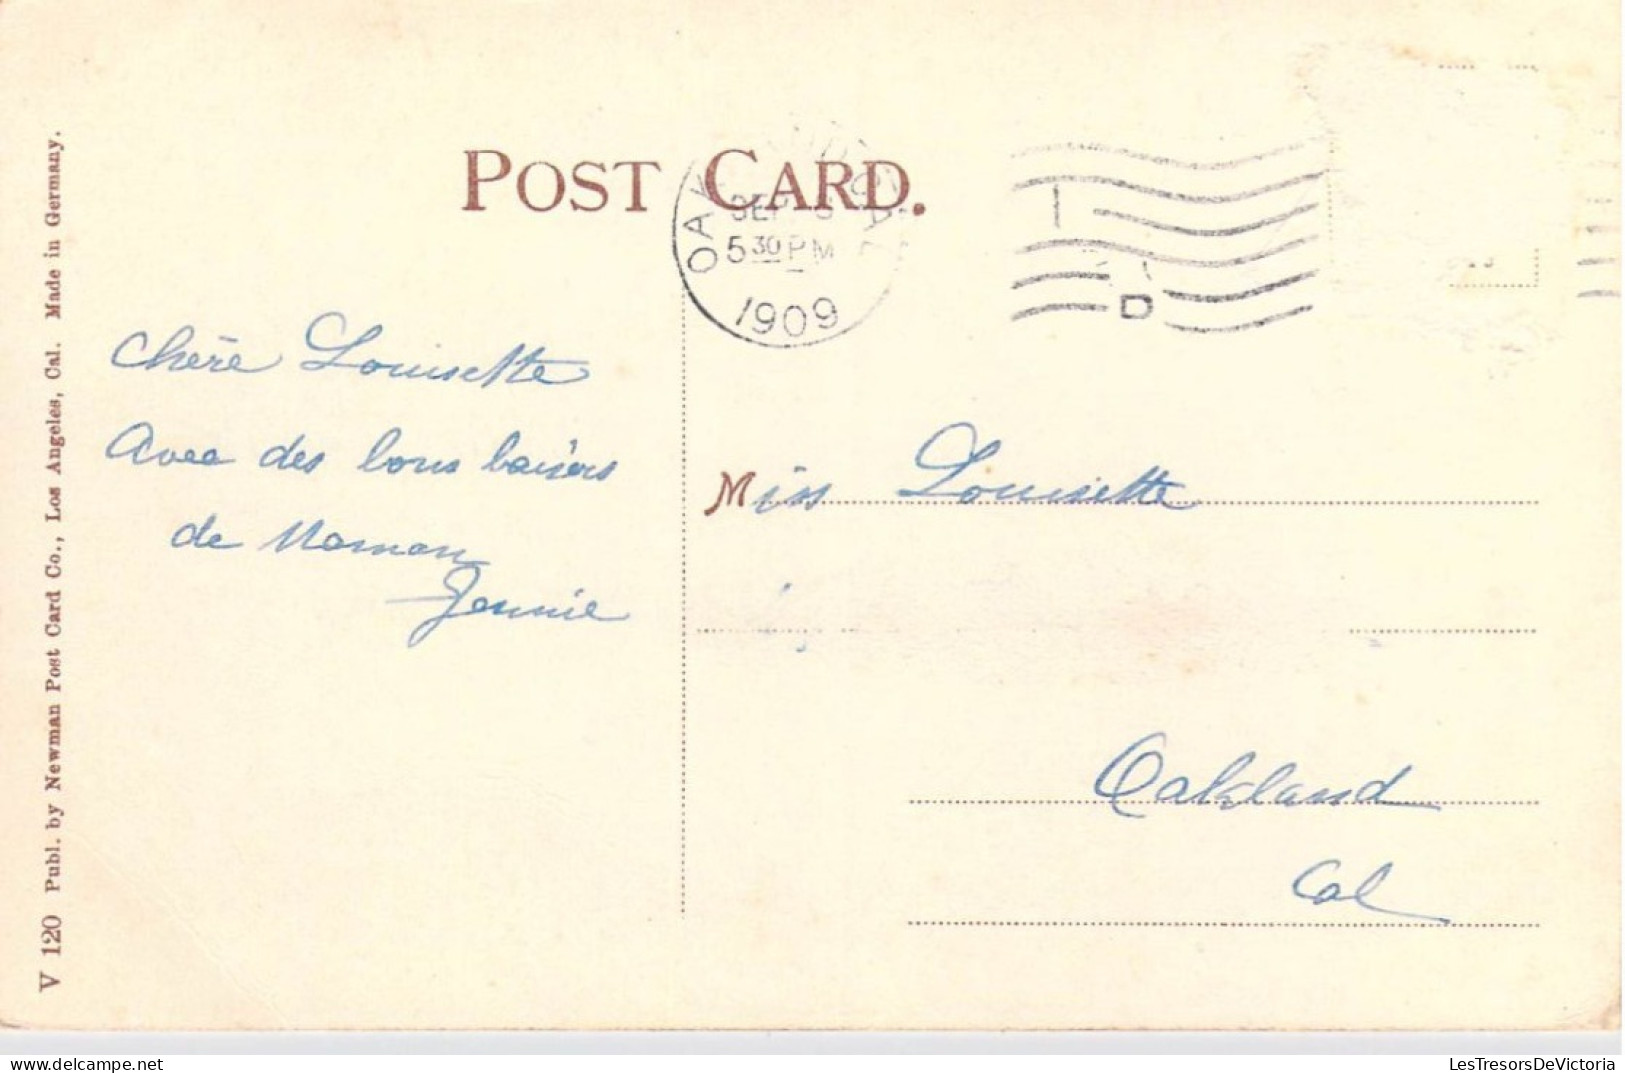 POST CARD.
OAK
SEP
5 30 PM
1909
D
Chère Louisette
Avec des bons baisers
de Maman
Jennie
Miss Louisette
Oakland
Cal
V 120 Publ. by Newman Post Card Co., Los Angeles, Cal. Made in Germany.
LesTresorsDeVictoria
delcampe.net